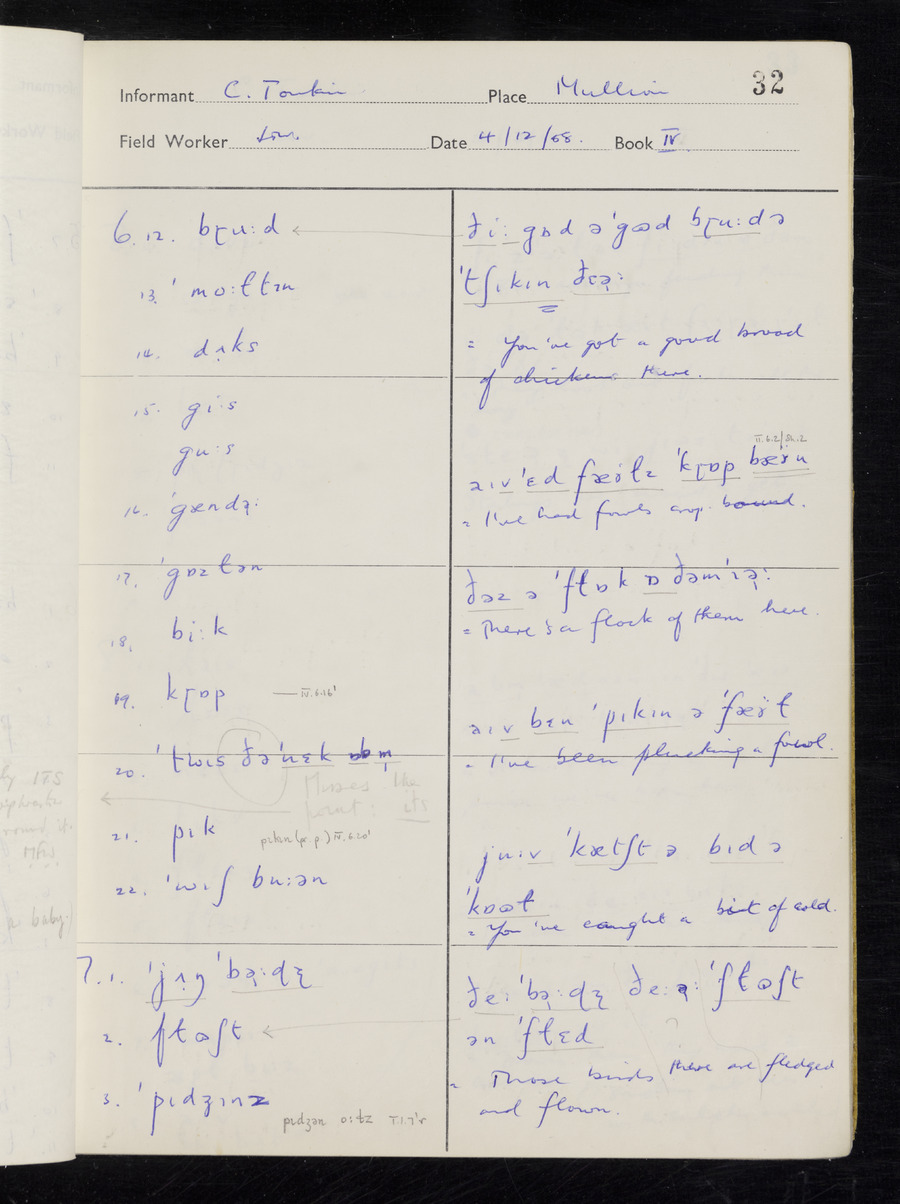 32
Informant C. Tonkin Place Mullion
Field Worker Date 4/12/68. Book IV
6.12. bɽu:d
13. ˈmɒ:ɫtɪn
14. dʌ̣ks
15. gi·s
gu·s
16. ˈgændə̣:
17. ˈgɒzɫən
18. bi̞:k
19. kɽɒp — IV.6.16ˈ
20. ˈtwɪs ðəˈnɛk
Misses the
point: its
21. pɪk pɪkən (pr.p.) IV.6.20ˈ
22. ˈwɪʃ bu:ən
7.1. ˈjʌ̣ŋ ˈbə̣:dʐ
2. fɫəʃt
3. ˈpɪdʒɪnz
pɪdʒən o:ɫz
ði: gɒd əˈgəd bɽu:d ə
ˈtʃɪkɪn ðɛə̣:
= You've got a good brood
of chickens there.
II.6.2/Sh.2
əɪv ˈɛd fæɤ̈ɫz ˈkɽɒp bæɤ̈n
= I've had fowls crop bound.
ðəz ə ˈfɫɒk ɒ ðəmˈɪə̣:
= There's a flock of them here.
əɪv bɛn ˈpɪkɪn ə ˈfæɤ̈ɫ
= I've been plucking a fowl.
ju:v ˈkætʃt ə bɪd ə
ˈkɒəɫ
= You've caught a bit of cold.
ðe: ˈbə̣:dʐ ðe:ə̣: ˈfɫəʃt
ən ˈfɫɛd
= Those birds there are fledged
and flown.
by ITS
round it.
a baby.)